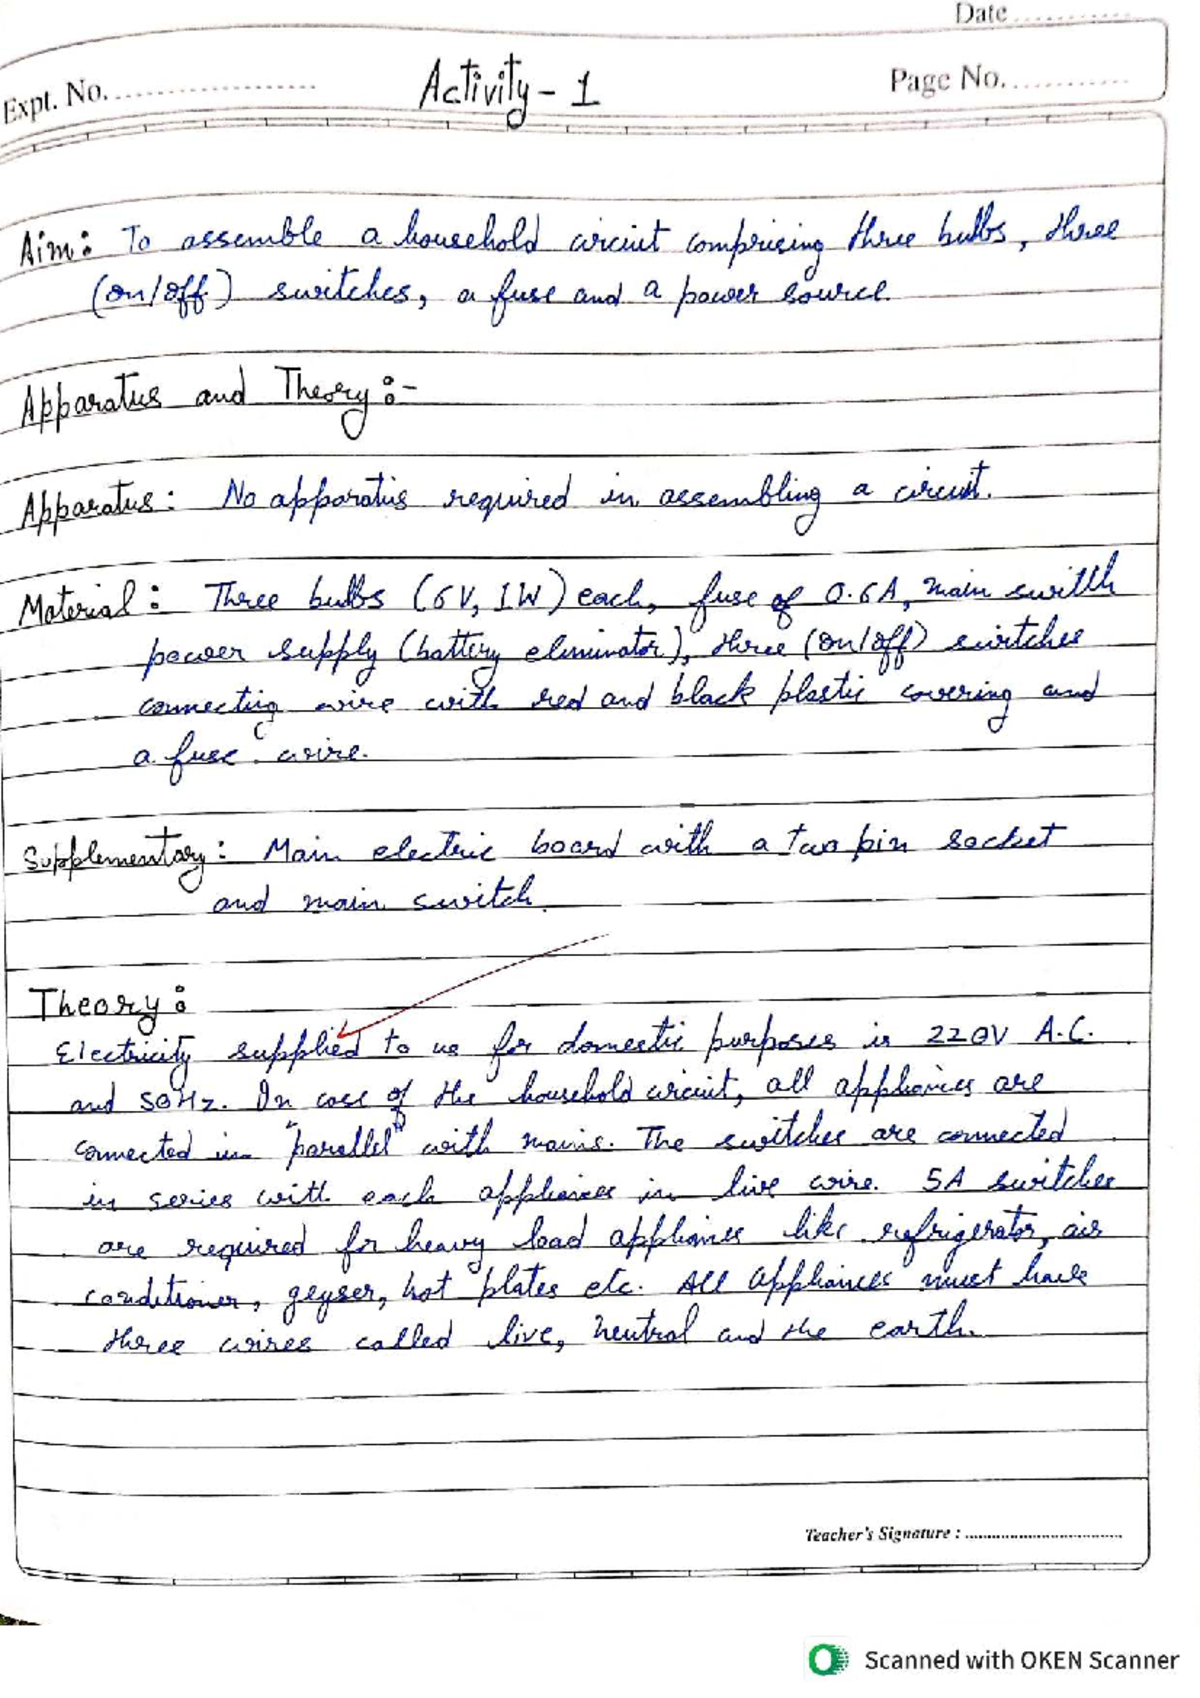 Date ............
Expt. No. ........................
Activity - 1
Page No. ............
Aim: To assemble a household circuit comprising three bulbs, three
(on/off) switches, a fuse and a power source.
Apparatus and Theory:-
Apparatus: No apparatus required in assembling a circuit.
Material: Three bulbs (6V, 1W) each, fuse of 0.6A, main switch
power supply (battery eliminator), three (on/off) switches
connecting wire with red and black plastic covering and
a fuse wire.
Supplementary: Main electric board with a two pin socket
and main switch.
Theory:
Electricity supplied to us for domestic purposes is 220V A.C.
and 50Hz. In case of the household circuit, all appliances are
connected in "parallel" with mains. The switches are connected
in series with each appliances in live wire. 5A switches
are required for heavy load appliances like refrigerator, air
conditioner, geyser, hot plates etc. All appliances must have
three wires called live, neutral and the earth.
Teacher's Signature : ................................
Scanned with OKEN Scanner